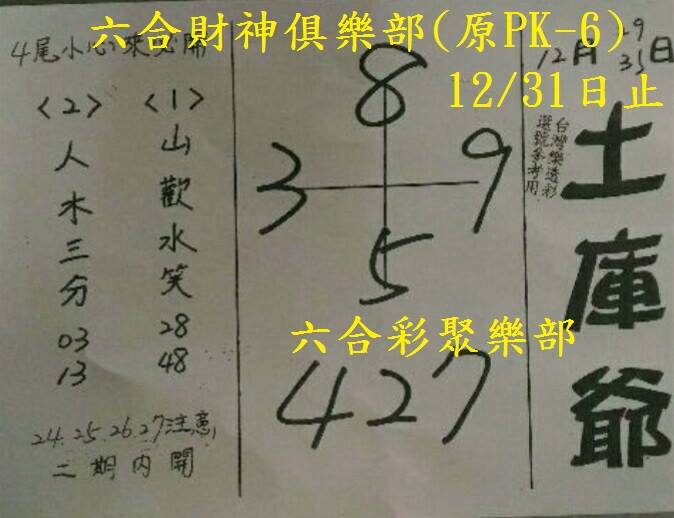 六合財神俱樂部(原PK-6)
12/31日止
12月 29 31日
台灣樂透彩
選號參考用
土庫爺
4尾小心來必開
<1>
山歡水笑
28
48
<2>
人木三分
03
13
24.25.26.27注意
二期內開
8
3
9
5
六合彩聚樂部
427